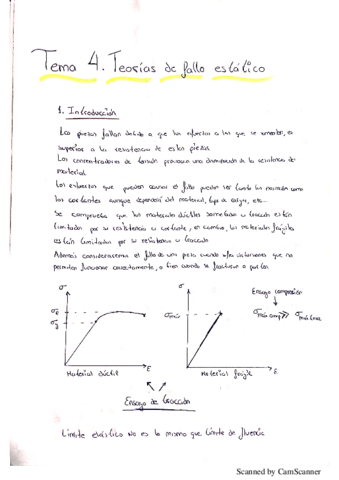 Tema 4. Teorías de fallo estático
1. Introducción
Las piezas fallan debido a que los esfuerzos a los que se someten, es
superior a la resistencia de estas piezas
Los concentradores de tensión provocan una disminución de la resistencia de
material
Los esfuerzos que pueden causar el fallo pueden ser tanto los normales como
los cortantes aunque dependerá del material, tipo de carga, etc...
Se comprueba que los materiales dúctiles sometidos a tracción están
limitados por su resistencia a cortante, en cambio, los materiales frágiles
están limitados por su resistencia a tracción
Además consideraremos el fallo de una pieza cuando sufre distorsiones que no
permitan funcionar correctamente, o bien cuando se fracture o
σ
σ
Ensayo compresión
σ
σ
ε
Material dúctil
σmáx
ε
Material frágil
σmáx
Ensayo de tracción
Límite elástico no es lo mismo que límite de fluencia
Scanned by CamScanner